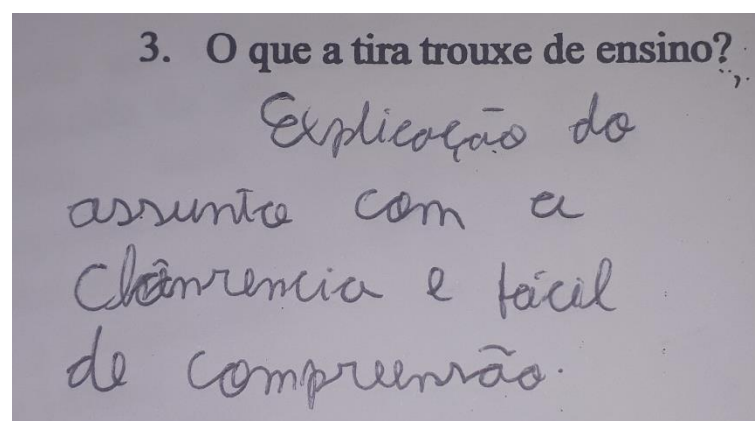 3. O que a tira trouxe de ensino?
Explicação do
assunto com a
e fácil
de compreensão.